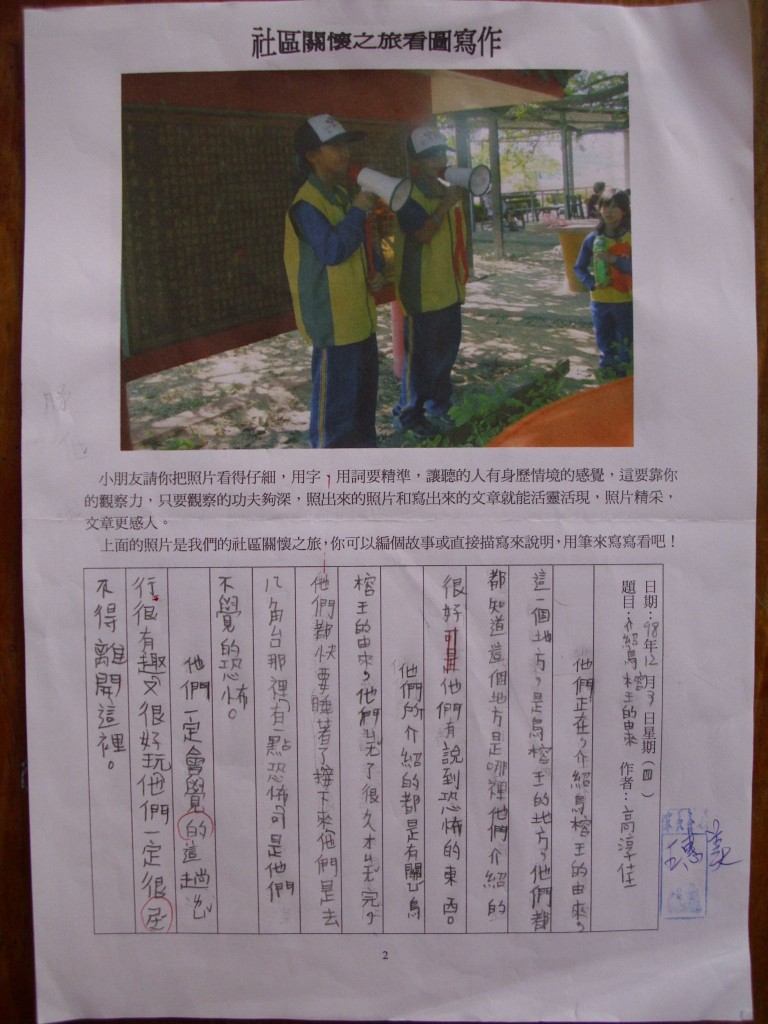 社區關懷之旅看圖寫作
小朋友請你把照片看得仔細，用字，用詞要精準，讓聽的人有身歷情境的感覺，這要靠你
的觀察力，只要觀察的功夫夠深，照出來的照片和寫出來的文章就能活靈活現，照片精采，
文章更感人。
上面的照片是我們的社區關懷之旅，你可以編個故事或直接描寫來說明，用筆來寫寫看吧！
日期：98年12月3日星期（四）
題目：介紹鳥榕王的由來 作者：高淳佳
他們正在，介紹鳥榕王的由來，
這一個地方，是鳥榕王的地方，他們都
都知道這個地方是哪裡他們介紹的
很好可是他們有說到恐怖的東西。
他們所介紹的都是有關鳥
榕王的由來，他們說了很久才說完，
他們都快要睡著了接下來他們是去
八角台那裡有一點恐怖可是他們
不覺的恐怖。
他們一定會覺的這趟
行很有趣又很好玩他們一定很
不得離開這裡。
2